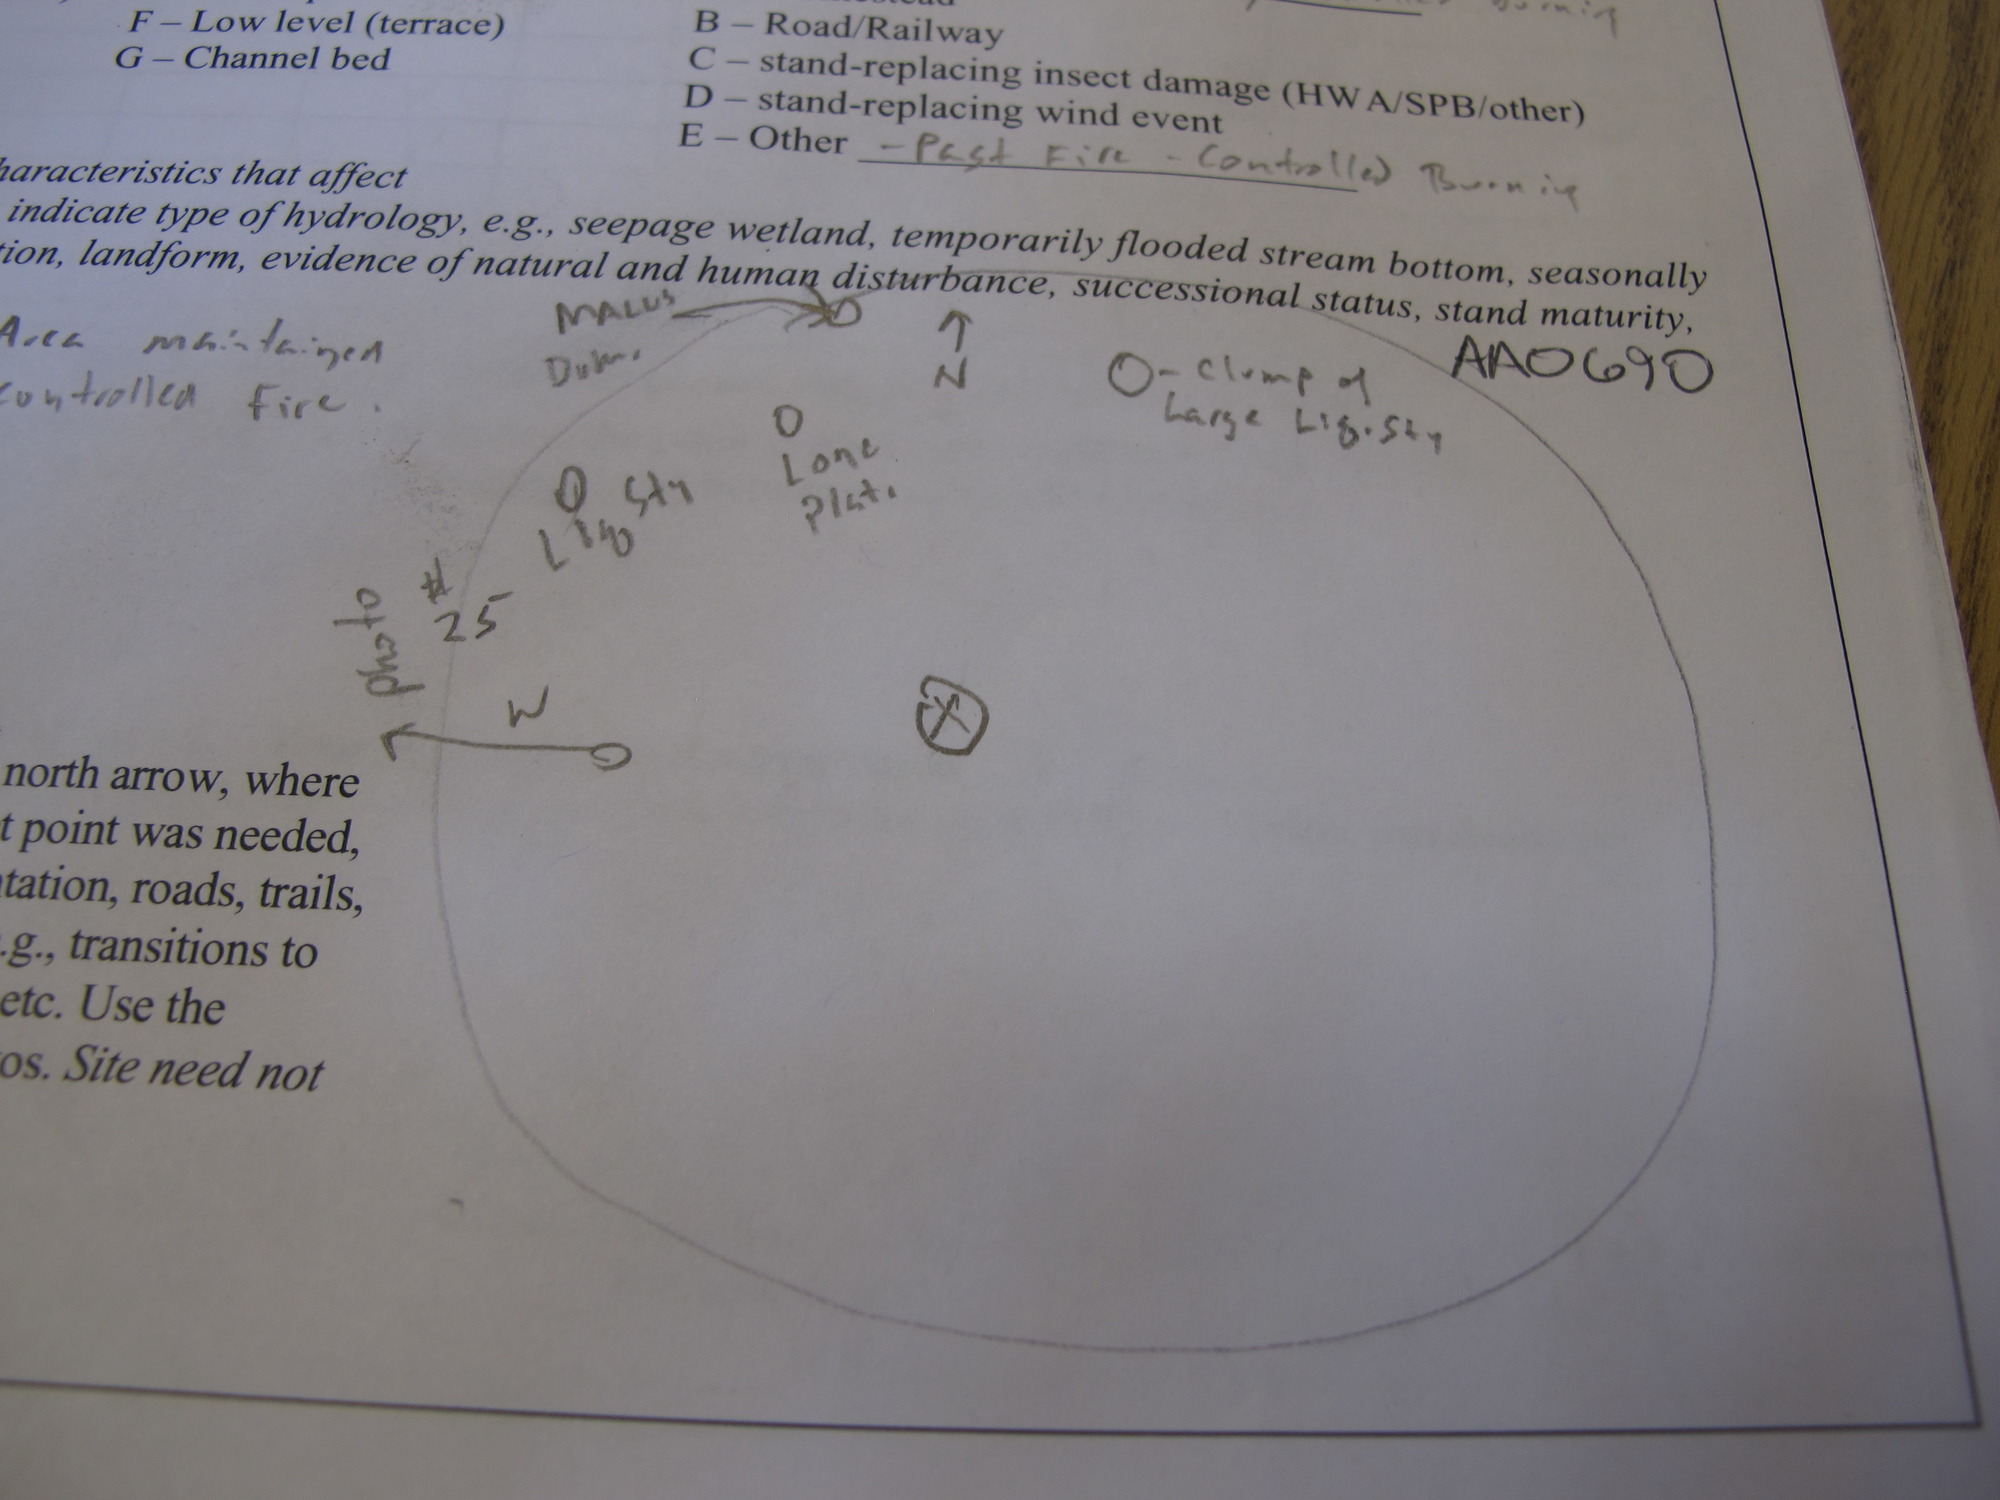 F – Low level (terrace)
G – Channel bed
B – Road/Railway
C – stand-replacing insect damage (HWA/SPB/other)
D – stand-replacing wind event
E – Other - Past Fire - Controlled Burning
haracteristics that affect
indicate type of hydrology, e.g., seepage wetland, temporarily flooded stream bottom, seasonally
tion, landform, evidence of natural and human disturbance, successional status, stand maturity,
Area maintained
controlled Fire.
MALUS
N
O- Clump of
Large Liq. Sty
AA0690
Lone
Plat.
Liq Sty
#
25
photo
W
X
north arrow, where
t point was needed,
tation, roads, trails,
.g., transitions to
etc. Use the
os. Site need not